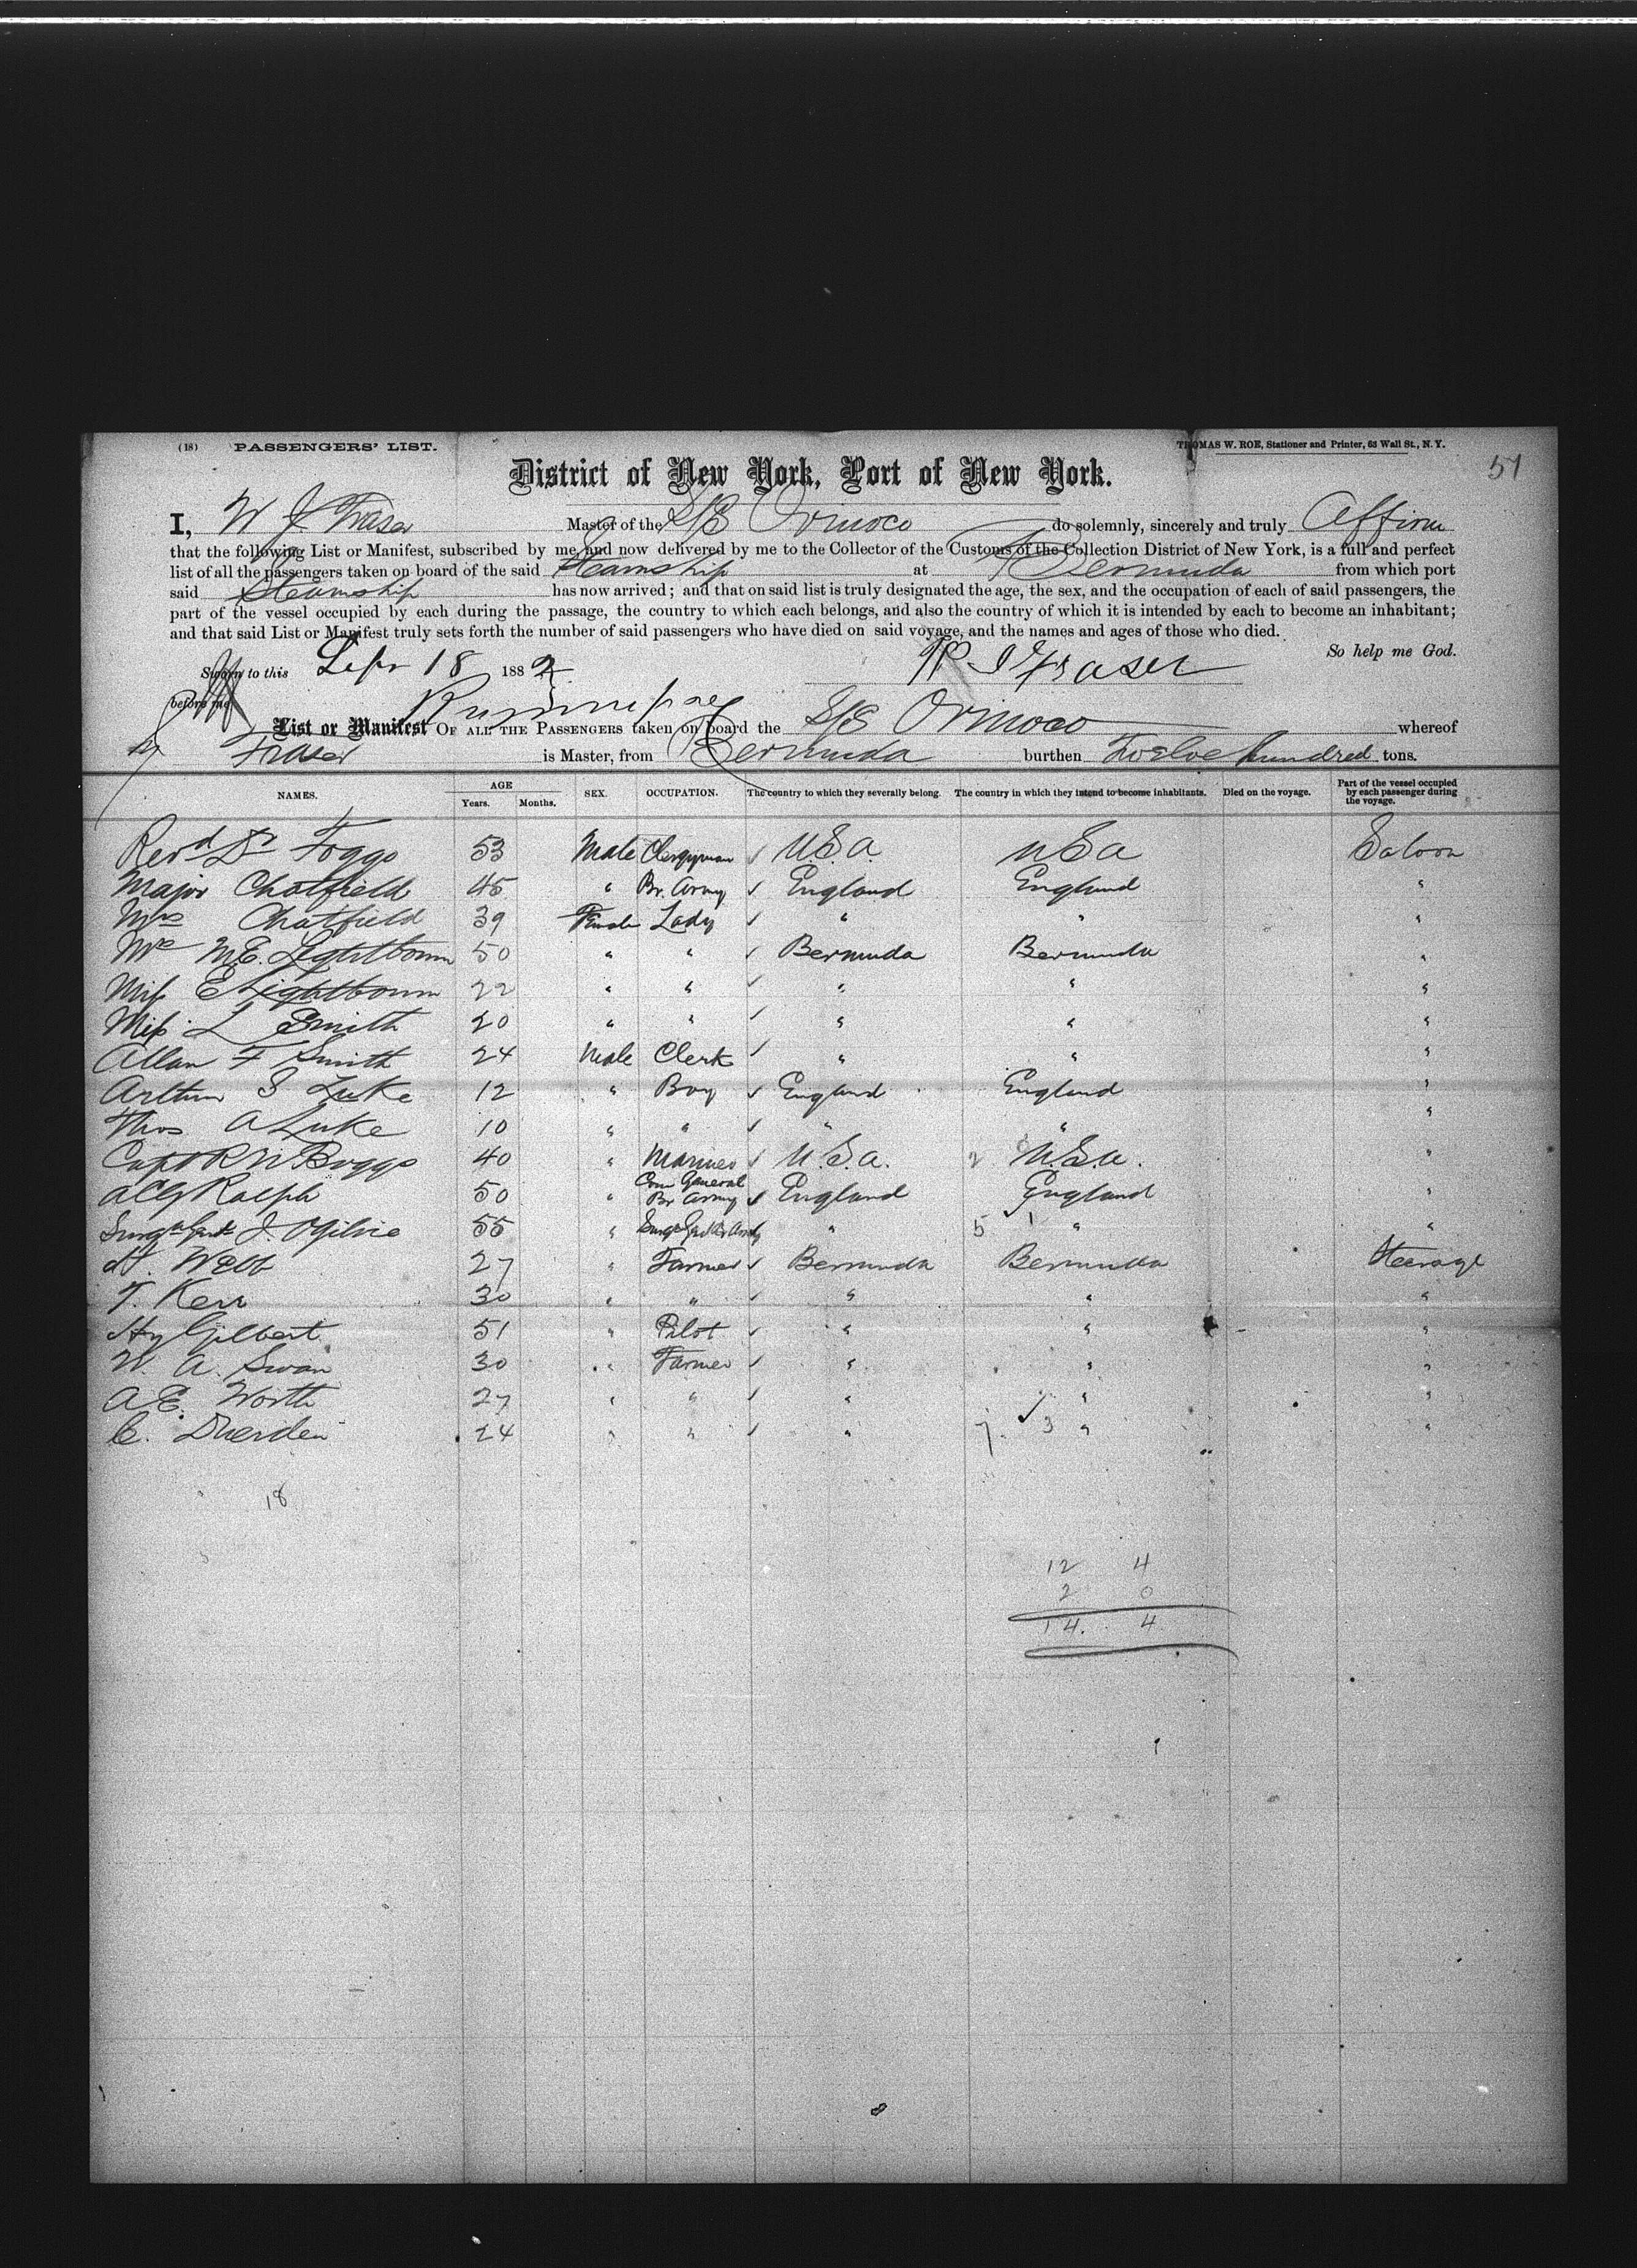 (18) PASSENGERS' LIST.
THOMAS W. ROE, Stationer and Printer, 63 Wall St., N. Y.
51
District of New York, Port of New York.
I, W J Fraser Master of the S/S Orinoco do solemnly, sincerely and truly Affirm
that the following List or Manifest, subscribed by me and now delivered by me to the Collector of the Customs of the Collection District of New York, is a full and perfect
list of all the passengers taken on board of the said Steamship at Bermuda from which port
said Steamship has now arrived; and that on said list is truly designated the age, the sex, and the occupation of each of said passengers, the
part of the vessel occupied by each during the passage, the country to which each belongs, and also the country of which it is intended by each to become an inhabitant;
and that said List or Manifest truly sets forth the number of said passengers who have died on said voyage, and the names and ages of those who died.
So help me God.
Sworn to this Sepr 18 1882 W J Fraser
before me
List or Manifest OF ALL THE PASSENGERS taken on board the S/S Orinoco whereof
Fraser is Master, from Bermuda burthen Twelve hundred tons.
NAMES. AGE Years. Months. SEX. OCCUPATION. The country to which they severally belong. The country in which they intend to become inhabitants. Died on the voyage. Part of the vessel occupied by each passenger during the voyage.
Revd Dr Foggo 53 Male Clergyman ✓ U.S.a. U S a Saloon
Major Chatfield 45 " Br. Army ✓ England England "
Mrs Chatfield 39 Female Lady ✓ " " "
Mrs M.E. Lightbourn 50 " " ✓ Bermuda Bermuda "
Miss E Lightbourn 22 " " ✓ " " "
Miss L Smith 20 " " ✓ " " "
Allan F Smith 24 Male Clerk ✓ " " "
Arthur S Luke 12 " Boy ✓ England England "
Thos A Luke 10 " " ✓ " " "
Capt R N Boggs 40 " Mariner ✓ U.S.a. 2 U.S.a. "
a C G Ralph 50 " Com General Br Army ✓ England England "
J. Ogilvie 55 " " 5 1 " "
H. Webb 27 " Farmer ✓ Bermuda Bermuda Steerage
T. Kerr 30 " " ✓ " " "
Hy Gilbert 51 " Pilot ✓ " " "
W. A. Swan 30 " Farmer ✓ " " "
A E. Worth 27 " " ✓ " ✓ " "
C. Duerden 24 " " ✓ " 7 3 " "
18
12 4
2 0
14. 4